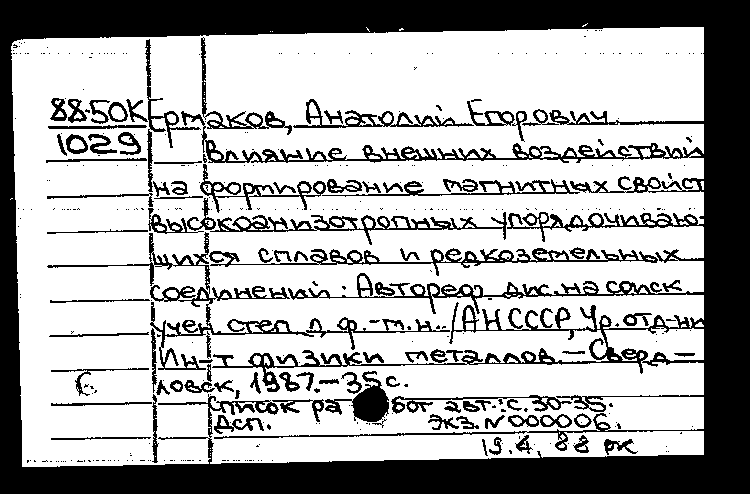 88-50К Ермаков, Анатолий Егорович.
1029 Влияние внешних воздействий
на формирование магнитных свойст
высокоанизотропных упорядочиваю-
щихся сплавов и редкоземельных
соединений: Автореф. дис. на соиск.
учен. степ. д. ф.-м.н. / АН СССР, Ур. отд-ни
Ин-т физики металлов. - Сверд-
ловск, 1987. - 35 с.
Список ра бот авт.: с. 30-35.
Дсп. Экз. N 000006.
19.4.88